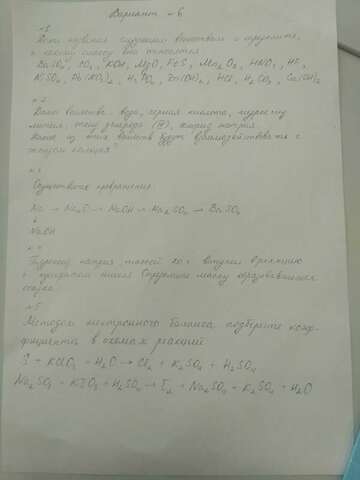 Вариант - 6
№1
Дать названия следующим веществам и определить,
к какому классу они относятся
BaSO₄, CO₂, KOH, MgO, FeS, Mn₂O₃, HNO₃, HF,
Pb(NO₃)₂, H₃PO₄, Zn(OH)₂, HCl, H₂CO₃, Ca(OH)₂
№2
Даны вещества: вода, серная кислота, гидроксид
лития, оксид углерода (IV), оксид натрия.
Какие из этих веществ будут взаимодействовать с
оксидом кальция?
№3
Осуществите превращения
Na → Na₂O → NaOH → Na₂SO₄ → BaSO₄
↓
NaOH
№4
Гидроксид натрия массой 20 г вступил в реакцию
с хлоридом Определите массу образовавшегося
осадка.
№5
Методом электронного баланса подберите коэф-
фициенты в схемах реакций
S + KClO₃ + H₂O → Cl₂ + K₂SO₄ + H₂SO₄
Na₂SO₃ + KIO₃ + H₂SO₄ → I₂ + Na₂SO₄ + K₂SO₄ + H₂O